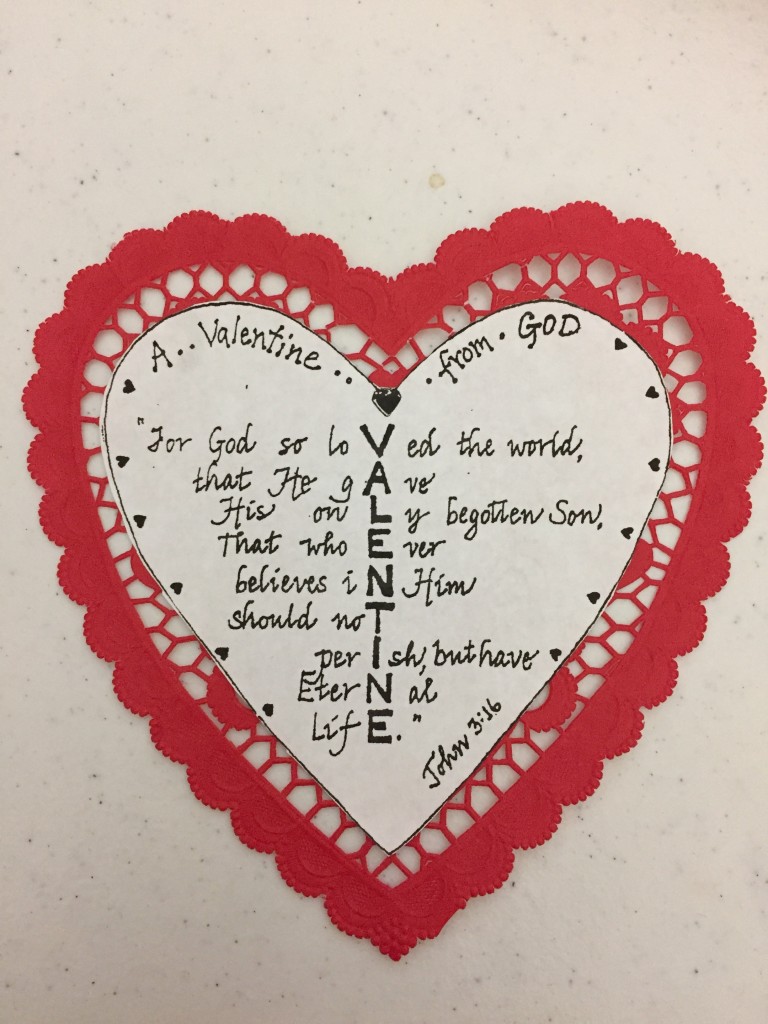 A.. Valentine .. . from . GOD
"For God so loVed the world,
that He gAve
His onLy begotten Son,
That whoEver
believes iN Him
should noT
perIsh, but have
EterNal
LifE."
John 3:16